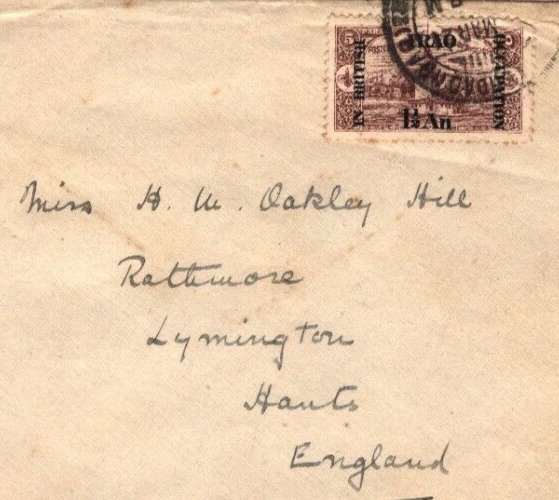 IRAQ
IN BRITISH
OCCUPATION
1½ An
Miss H. M. Oakley Hill
Rathmore
Lymington
Hants
England